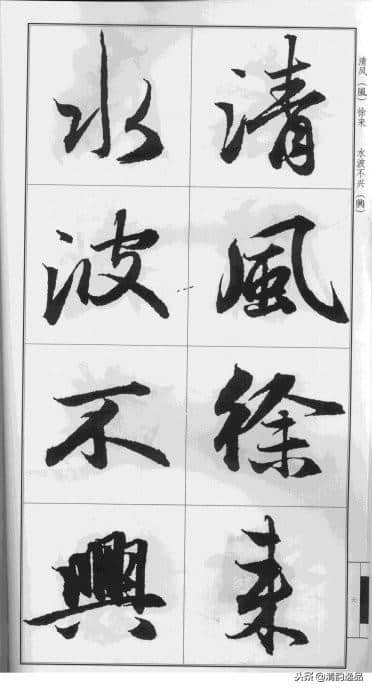 清风（風）徐来 水波不兴（興）
清風徐来
水波不興
六
头条@清韵逸品